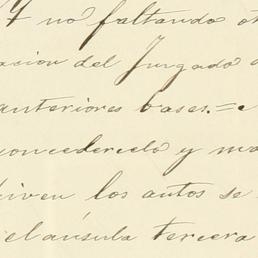 Y no faltando ot
acion del Juzgado a
anteriores bases.=
concedercelo y ma
chiven los autos se
clausula tercera